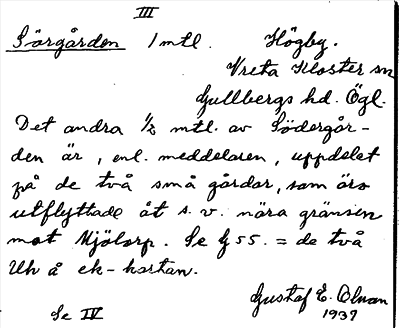 III
Sörgården 1 mtl. Högby.
Vreta Kloster sn
Gullbergs hd. Ögl.
Det andra 1/2 mtl. av Södergår-
den är, enl. meddelaren, uppdelat
på de två små gårdar, som äro
utflyttade åt s. v. nära gränsen
mot Mjölorp. Se G 55. = de två
Uh å ek-kartan.
Gustaf E. Olman
Se IV 1937